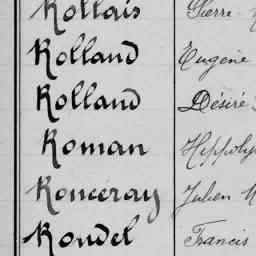 Rollais Pierre
Rolland Eugène
Rolland Désiré
Roman Hippoly
Ronceray Julien
Rondel Francis